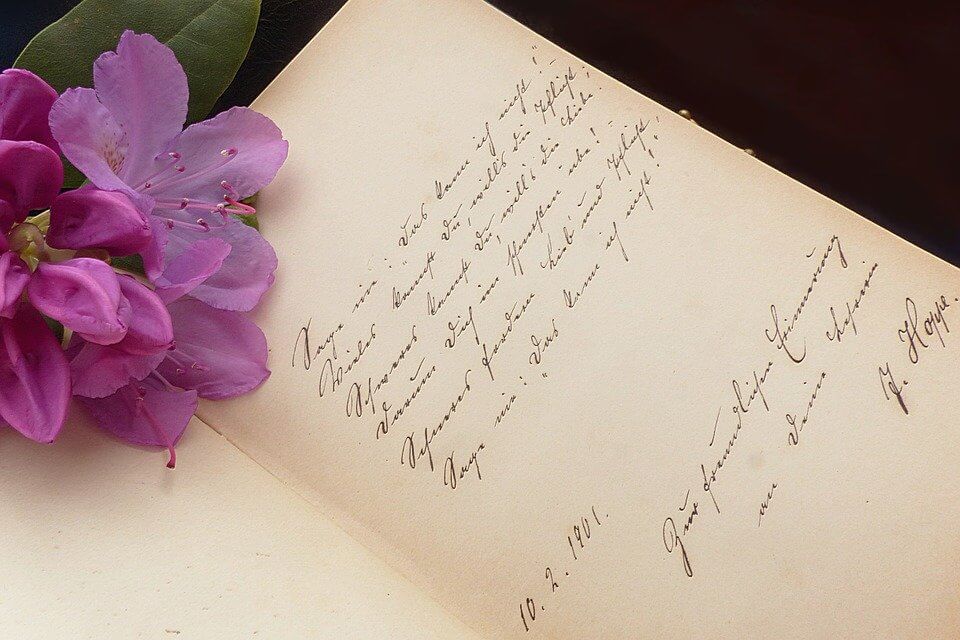 Sage nie: „Das kann ich nicht!" –
Vieles kannst Du, will's die Pflicht;
Schweres kannst Du, will's die Liebe.
Darum Dich im Schwersten übe! –
Schweres fordern Lieb' und Pflicht,
Sage nie: „Das kann ich nicht!"
10. 2. 1901.
Zur freundlichen Erinnerung
an
J. Hoppe.